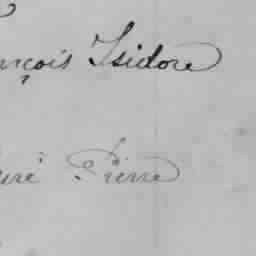 nçois Isidore
uré Pierre